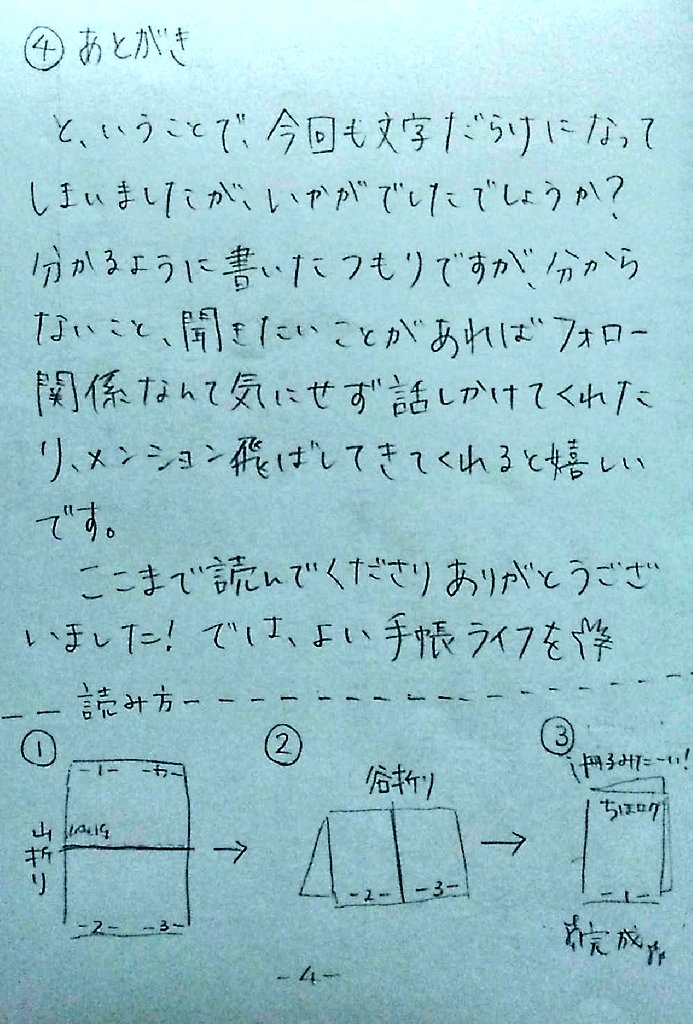 ④ あとがき
と、いうことで、今回も文字だらけになって
しまいましたが、いかがでしたでしょうか？
分かるように書いたつもりですが、分から
ないこと、聞きたいことがあればフォロー
関係なんて気にせず話しかけてくれた
り、メンション飛ばしてきてくれると嬉しい
です。
ここまで読んでくださりありがとうござ
いました！ では、よい手帳ライフを
読み方
①
-1- -4-
山折り
-2- -3-
②
谷折り
-2- -3-
③
冊子みたーい！
ちほログ
-1-
完成
-4-